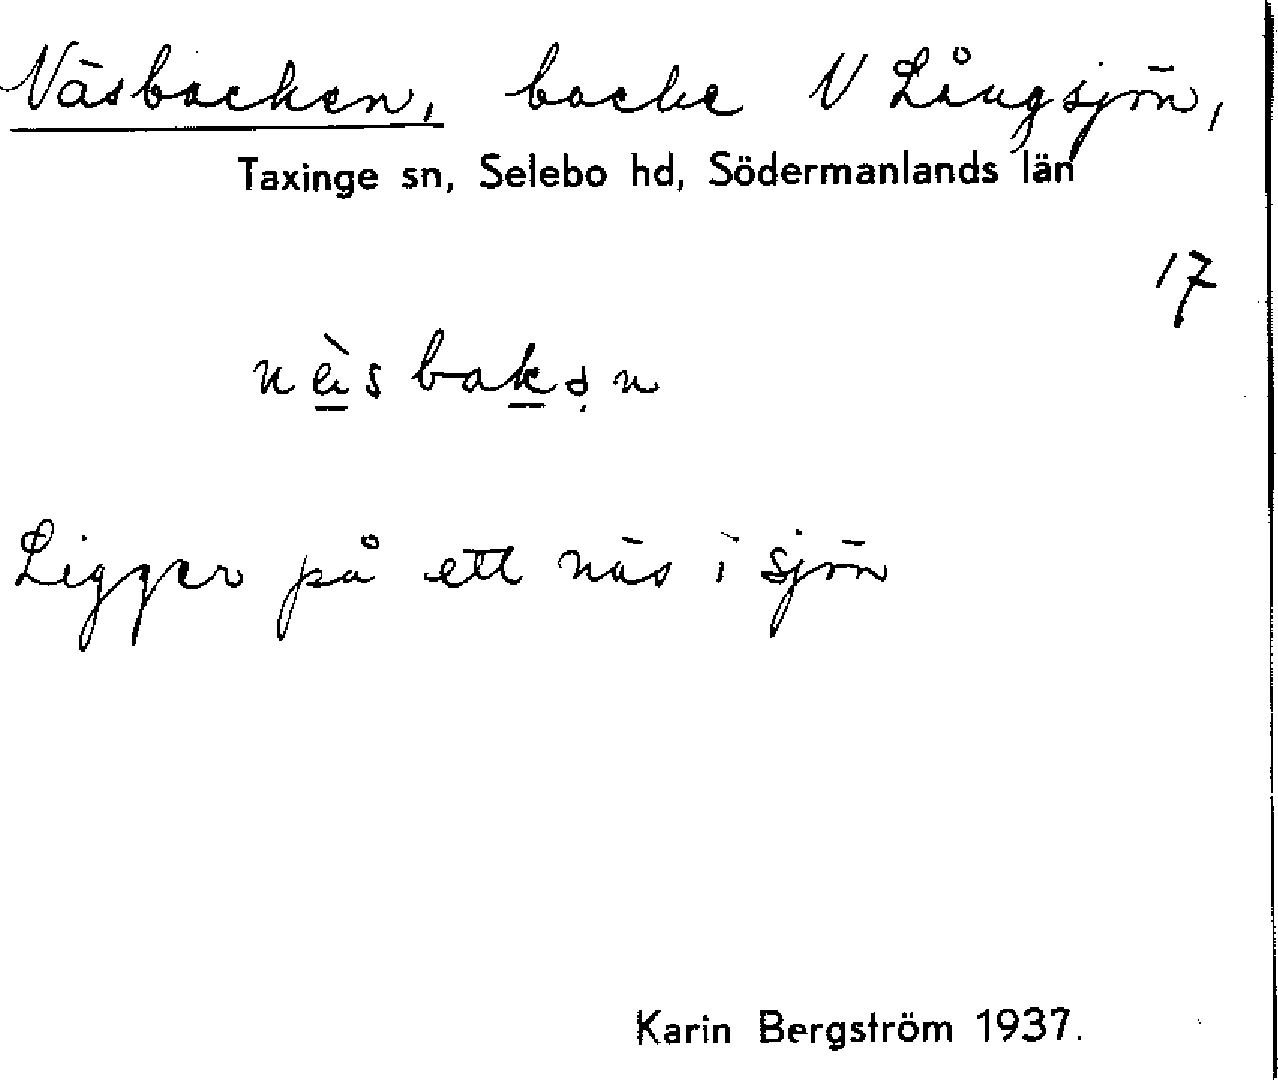 Näsbacken, backe N Långsjön,
Taxinge sn, Selebo hd, Södermanlands län
17
nä̀sbakən
Ligger på ett näs i sjön
Karin Bergström 1937.